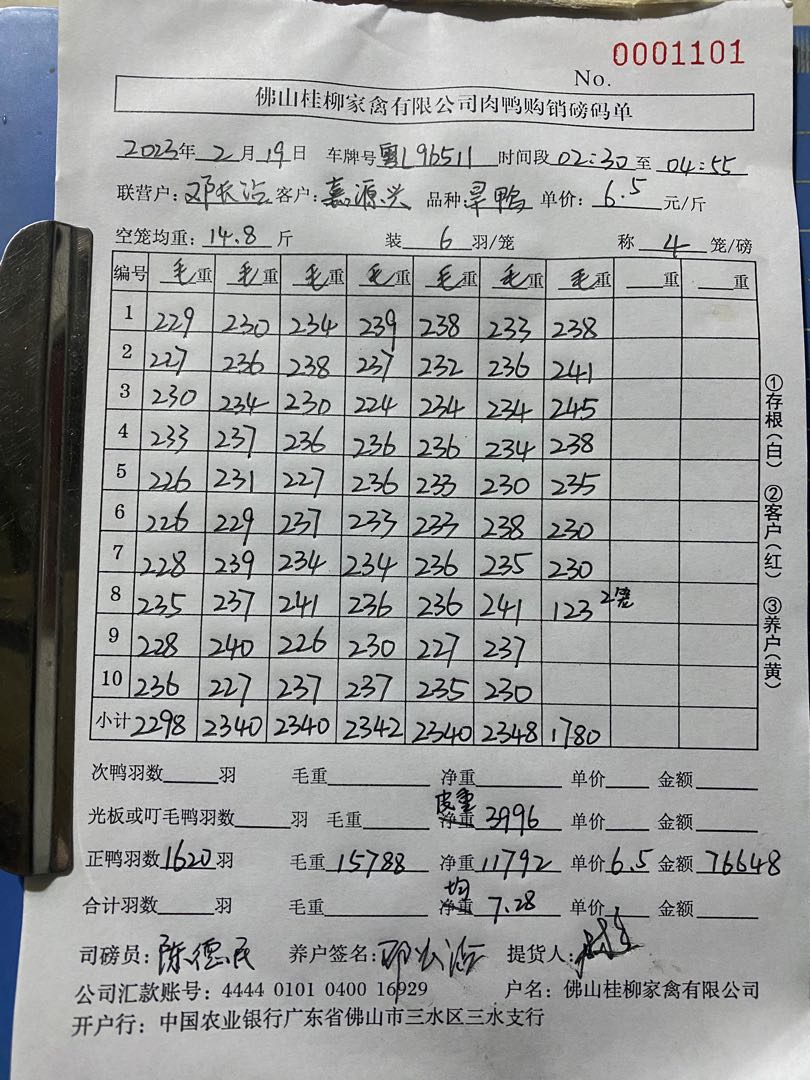 No. 0001101
佛山桂柳家禽有限公司肉鸭购销磅码单
2023年 2月 19日 车牌号 粤L96511 时间段 02:30 至 04:55
联营户: 邓长治 客户: 嘉源兴 品种 旱鸭 单价: 6.5 元/斤
空笼均重: 14.8 斤 装 6 羽/笼 称 4 笼/磅
编号 毛重 毛重 毛重 毛重 毛重 毛重 毛重 重 重
1 229 230 234 239 238 233 238
2 227 236 238 237 232 236 241
3 230 234 230 224 234 234 245
4 233 237 236 236 236 234 238
5 226 231 227 236 233 230 235
6 226 229 237 233 233 238 230
7 228 239 234 234 236 235 230
8 235 237 241 236 236 241 123 2笼
9 228 240 226 230 227 237
10 236 227 237 237 235 230
小计 2298 2340 2340 2342 2340 2348 1780
次鸭羽数 羽 毛重 净重 单价 金额
光板或叮毛鸭羽数 羽 毛重 净重 皮重 3996 单价 金额
正鸭羽数 1620 羽 毛重 15788 净重 11792 单价 6.5 金额 76648
合计羽数 羽 毛重 净重 均 7.28 单价 金额
司磅员: 陈德民 养户签名: 邓长治 提货人:
公司汇款账号: 4444 0101 0400 16929 户名: 佛山桂柳家禽有限公司
开户行: 中国农业银行广东省佛山市三水区三水支行
①存根(白) ②客户(红) ③养户(黄)